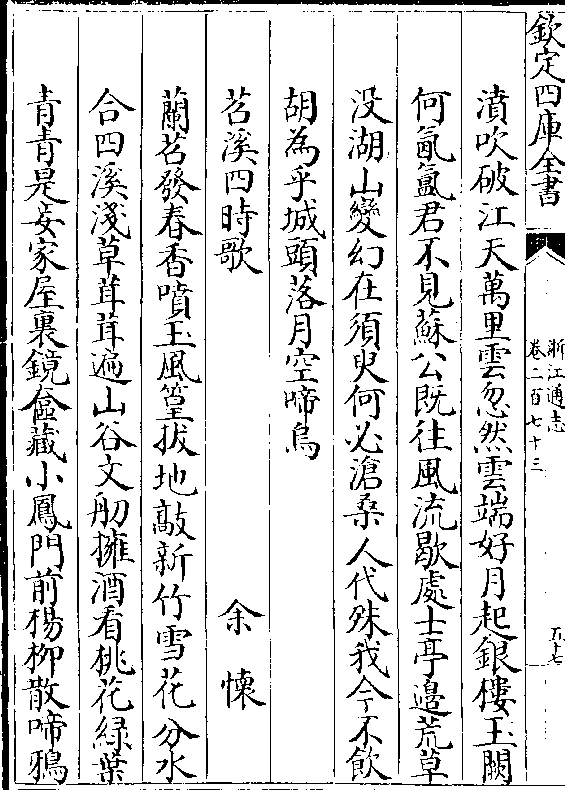 欽定四庫全書
浙江通志
卷二百七十三
五十七
濆吹破江天萬里雲忽然雲端好月起銀樓玉闕
何氤氲君不見蘇公既往風流歇處士亭邊荒草
没湖山變幻在須臾何必滄桑人代殊我今不飲
胡為乎城頭落月空啼烏
苕溪四時歌 余懷
蘭苕發春香噴玉風篁拔地敲新竹雪花分水
合四溪淺草茸茸遍山谷文舠擁酒看桃花緑葉
青青是妾家屋裏鏡奩藏小鳳門前楊柳散啼鴉